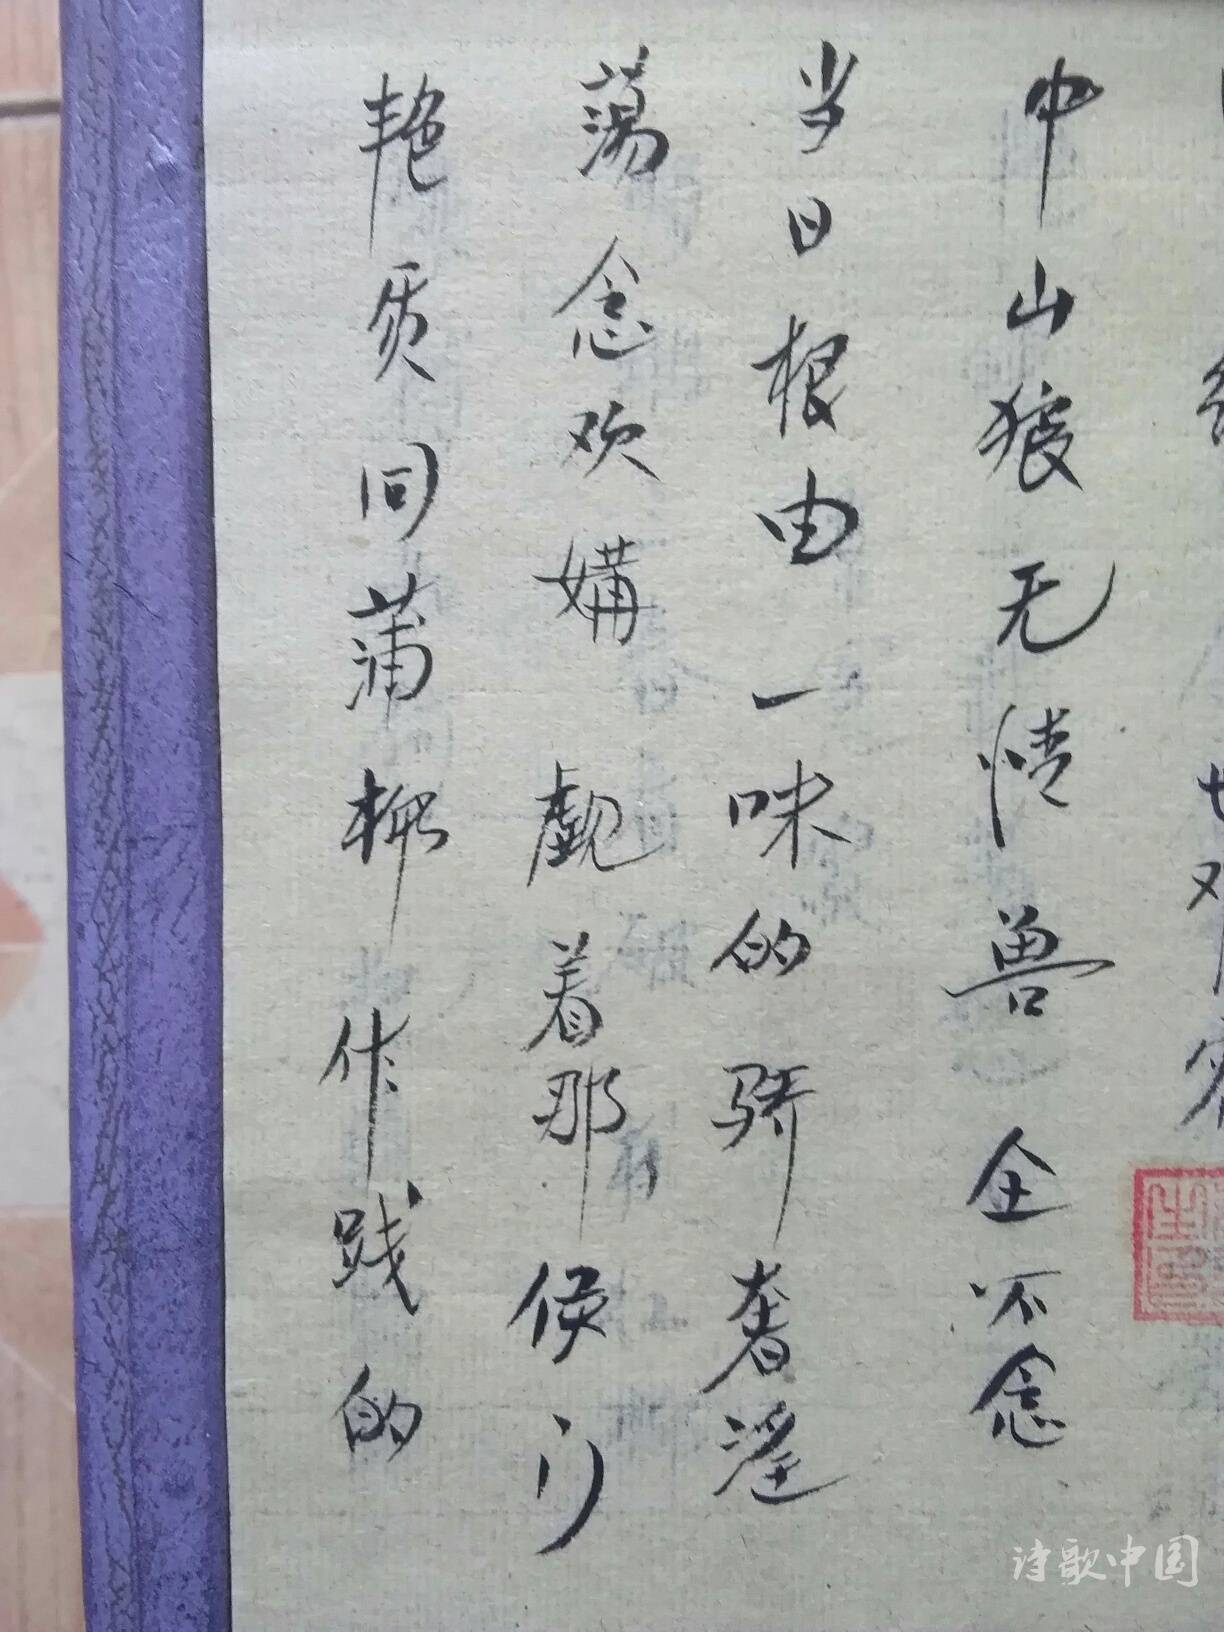 中山狼无情兽全不念
当日根由一味的骄奢淫
荡念欢媾觑着那侯门
艳质同蒲柳作践的
诗歌中国